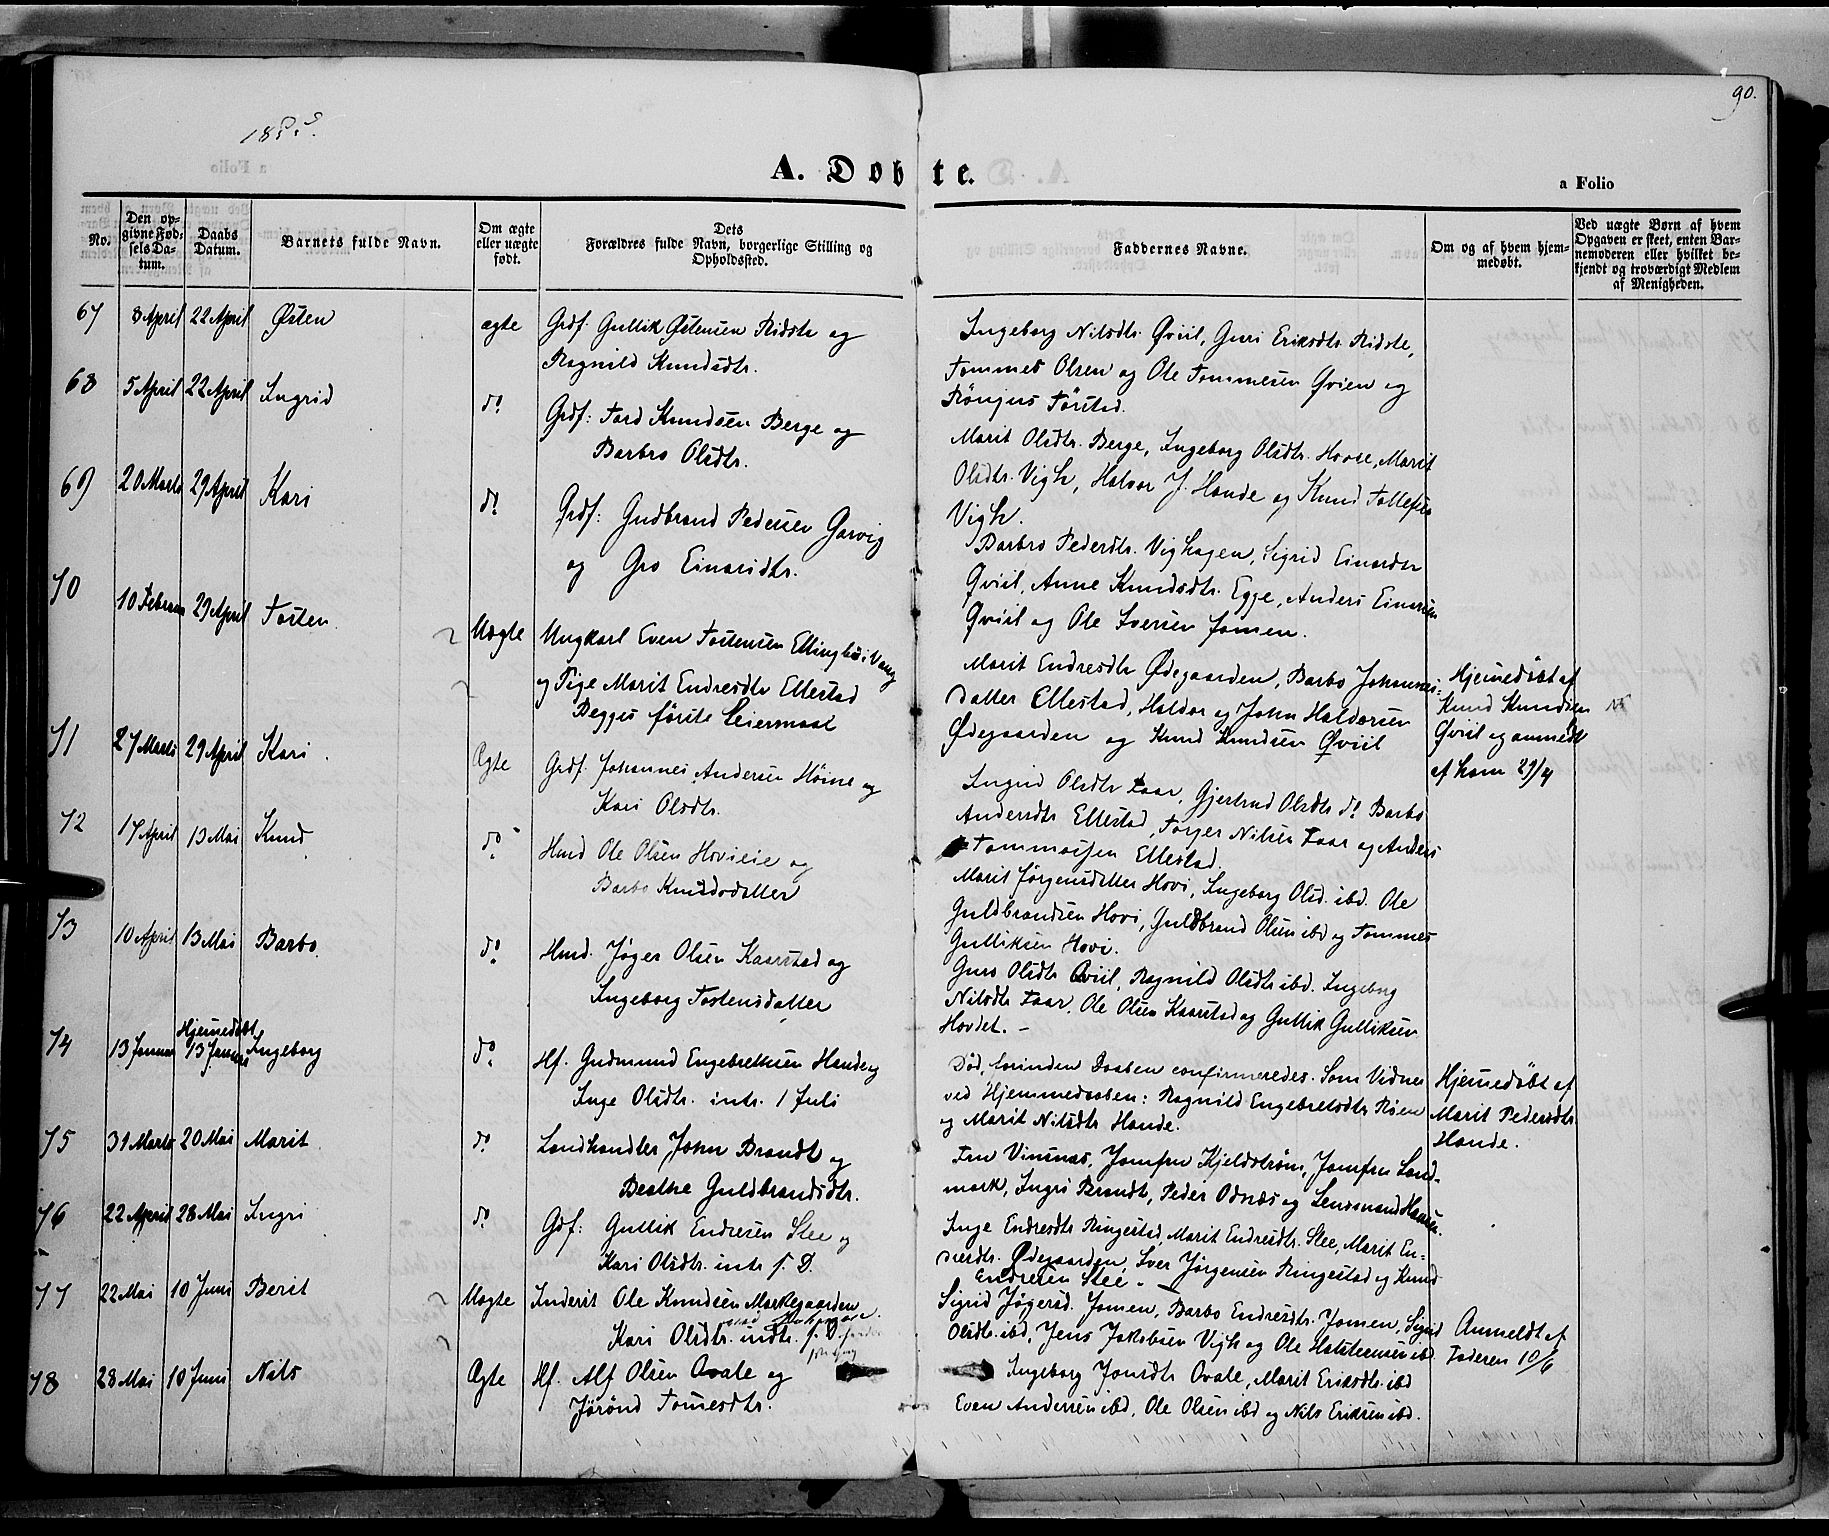 1855.
90.
A. Døbte.
a Folio
No.
Den op-
givne Fød-
sels Da-
tum.
Daabs
Datum.
Barnets fulde Navn.
Om ægte
eller uægte
født.
Dets
Forældres fulde Navn, borgerlige Stilling og
Opholdssted.
Faddernes Navne.
Om og af hvem hjem-
medøbt.
Ved uægte Børn af hvem
Opgaven er skeet, enten Bar-
nemoderen eller hvilket be-
kjendt og troværdigt Medlem
af Menigheden.
67 8 April 22 April Østen ægte Grdf. Gullik Østensen Ridste og
Ragnild Knudsdtr.
Ingeborg Nilsdtr. Qviil, Guri Eriksdtr. Ridste,
Tommes Olsen og Ole Tommesen Qvien og
68 5 April 22 April Ingrid do Grdf: Tord Knudsen Berge og
Barbro Olsdtr.
Marit Olsdtr. Berge, Ingeborg Olsdtr. Marit
Olsdtr. Vigh, Halvor J. Hande og Knud Tollefsen
Vigh.
69 20 Marts 29 April Kari do Grdf: Gudbrand Pedersen Garvig
og Gro Einarsdtr.
Barbro Pedersdtr. Vighagen, Sigrid Einarsdtr
Qviil, Anne Knudsdtr. Egge, Anders Einarsen
Qviil og Ole Iversen Jomen.
70 10 Februar 29 April Tosten Uægte Ungkarl Even Tostensen Ellingbø i Vang
og Pige Marit Endresdtr Ellestad
Begges første Leiermaal
Marit Endresdtr Ødegaarden, Barbo Johannes-
datter Ellestad, Haldor og John Haldorsen
Ødegaarden og Knud Knudsen Qviil
Hjemedøbt af
Knud Knudsen
Qviil og anmeldt
af ham 29/4
71 27 Marts 29 April Kari Ægte Grdf. Johannes Andersen Høine og
Kari Olsdtr.
Ingrid Olsdtr Faar, Gjertrud Olsdtr do Barbo
Andersdtr Ellestad, Torger Nilsen Faar og Anders
Tommossen Ellestad.
72 17 April 13 Mai Knud do Hmd Ole Olsen Hovieie og
Barbo Knudsdatter
Marit Jørgensdatter Hovi, Ingeborg Olsd. ibd. Ole
Guldbrandsen Hovi, Guldbrand Olsen ibd og Tommes
Gulliksen Hovi.
73 10 April 13 Mai Barbo do Hmd. Jøger Olsen Kaarstad og
Ingeborg Tostensdatter
Guro Olsdtr Qviil, Ragnild Olsdtr ibd. Ingeborg
Nilsdtr Faar, Ole Olsen Kaarstad og Gullik Gulliksen
Hovdet. –
74 13 Januar Hjemedøbt
13 Januar Ingeborg do Hf. Gudmund Engebrettsen Hande og
Inge Olsdtr. intr. 1 Juli
Død, forinden Daaben confirmeredes. Som Vidner
ved Hjemmedaaben: Ragnild Engebretsdtr Røen
og Marit Nilsdtr Hande.
Hjemedøbt af
Marit Pedersdtr.
Hande.
75 31 Marts 20 Mai Marit do Landhandler John Brandt og
Beathe Guldbrandsdtr.
Fru Vinsnes, Jomfru Kjeldstrøm, Jomfru Land-
mark, Ingri Brandt, Peder Odnæs og Lensmand Hansen.
76 22 April 28 Mai Ingri do Gdf: Gullik Endresen Slee og
Kari Olsdtr. intr. s. D.
Inge Endresdtr Ringestad, Marit Endresdtr. Slee, Marit En-
dresdtr. Ødegaarden, Iver Jørgensen Ringestad og Knud
Endresen Slee. –
77 22 Mai 10 Juni Berit Uægte Inderst Ole Knudsen Markegaarden
Kari Olsdtr. indtr. s. D.
Sigrid Jøgersd. Jomen, Barbo Endresdtr. Jomen, Sigrid
Olsdtr. ibd, Jens Jakobsen Vigh og Ole Halstensen ibd.
Anmeldt af
Faderen 10/6
78 28 Mai 10 Juni Nils Ægte Hf. Alf Olsen Qvale og
Jørønd Tomesdtr.
Ingeborg Jonsdtr Qvale, Marit Eriksdtr. ibd
Even Andersen ibd, Ole Olsen ibd og Nils Eriksen ibd.